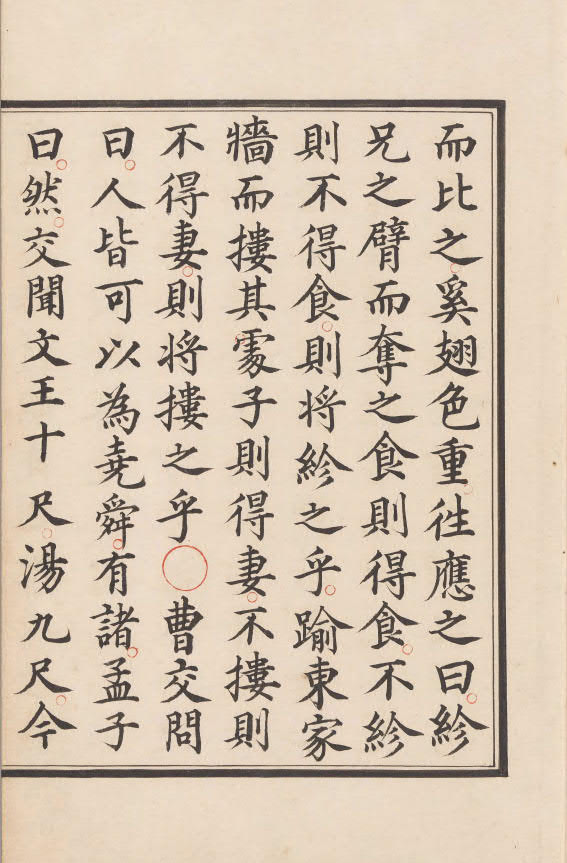 而比之奚翅色重往應之曰紾
兄之臂而奪之食則得食不紾
則不得食則将紾之乎踰東家
牆而摟其處子則得妻不摟則
不得妻則将摟之乎○曹交問
曰人皆可以為堯舜有諸孟子
曰然交聞文王十尺湯九尺今